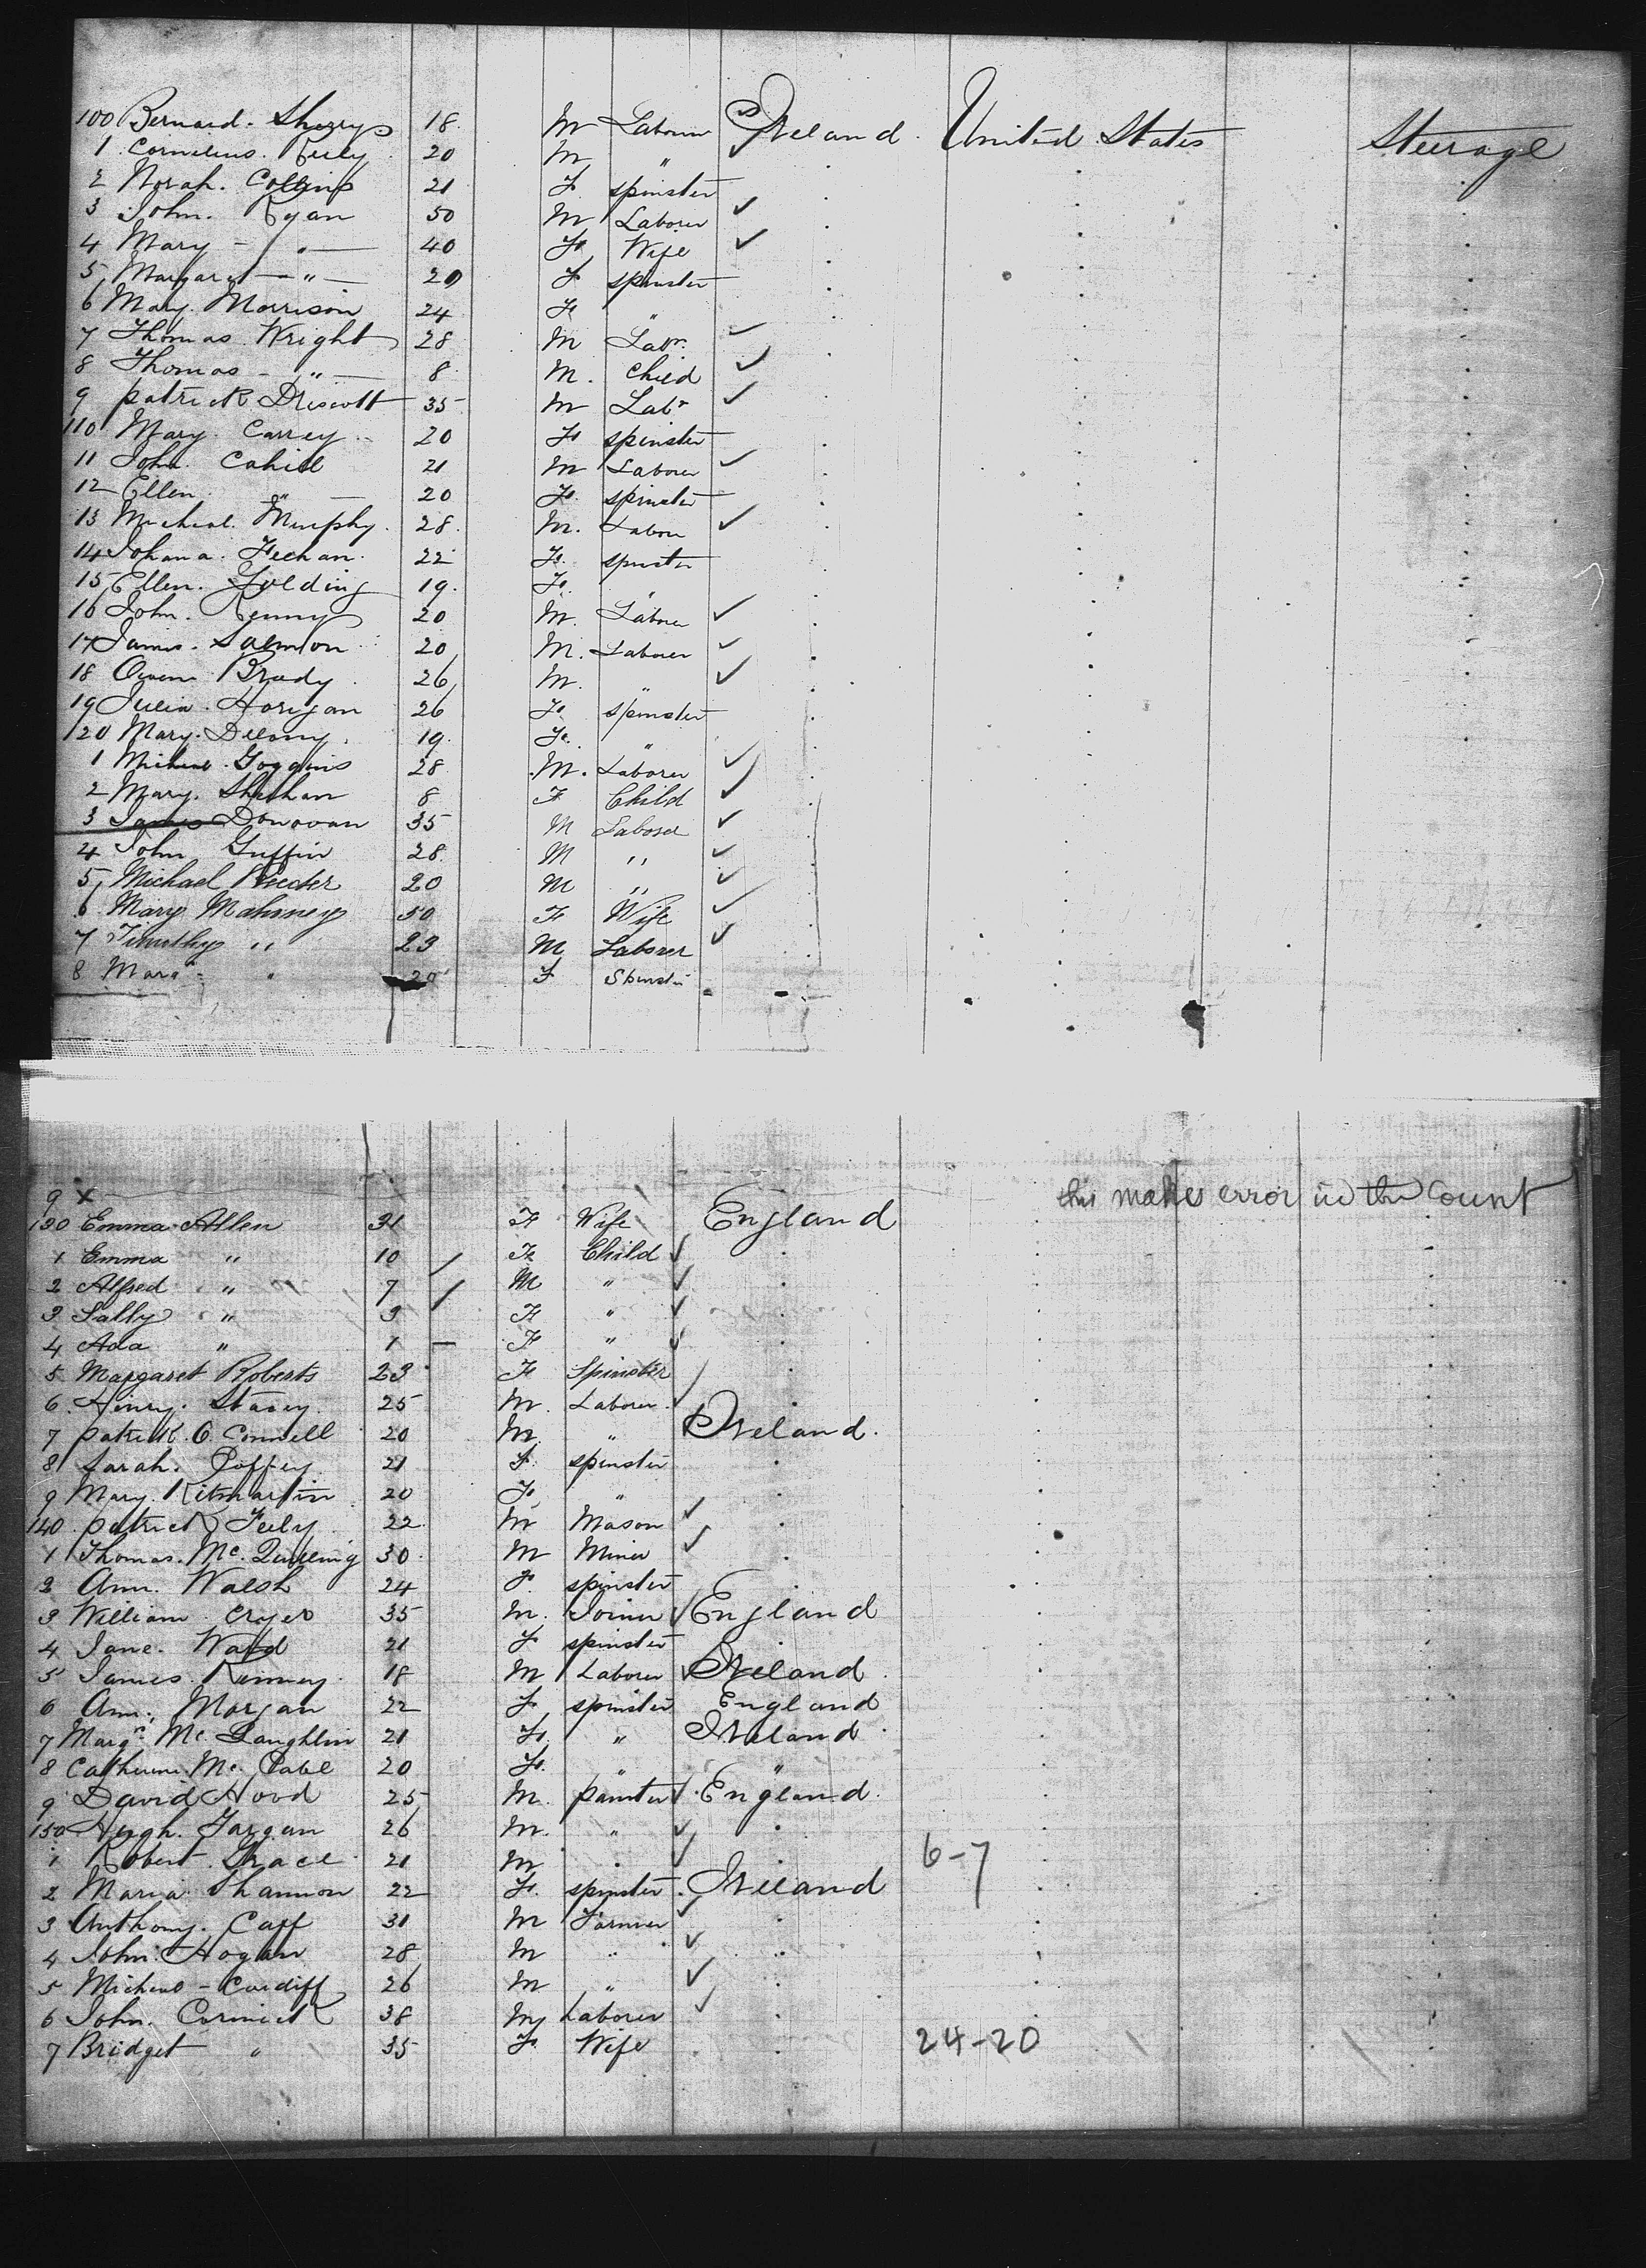 100 Bernard. Sherry 18. M Laborer Ireland. United States Steerage
1. Cornelius. Reily 20 M "
2 Norah. Collins 21 F. spinster
3 John. Ryan 50 M Laborer
4 Mary - " - 40 F. Wife
5, Margaret - " - 20 F spinster
6 Mary. Morrison 24 F. "
7 Thomas. Wright 28 M Labr.
8 Thomas - " - 8 M. Child
9 patrick Driscoll 35 M Labr
110 Mary. Carrey 20 F. spinster
11 John. Cahill 21 M Laborer
12 Ellen. " - 20 F. spinster
13 Micheal. Murphy. 28. M. Labor
14 Johana. Feehan. 22 F. spinster
15 Ellen. Golding 19. F. "
16 John. Kenny 20 M. Laborer
17 James. Salmon 20 M. Laborer
18 Owen Brady. 26 M. "
19 Julia. Horigan 26 F. spinster
120 Mary. Delany. 19. F. "
1 Micheal. Goggins 28 M. Laborer
2 Mary. Sheehan 8 F Child
3 James Donovan 35 M Laborer
4 John Griffin 28 M ,,
5, Michael 20 M ,,
6 Mary Mahoney 50 F Wife
7 Timothy ,, 23 M Laborer
8 " 20 F Spinster
9 x this makes error in the count
130 Emma Allen 31 F Wife England
1 Emma " 10 F Child
2 Alfred " 7 M "
3 Sally " 3 F "
4 Ada " 1 - F "
5 Margaret Roberts 23 F Spinster
6. Henry. Stacey. 25 M. Laborer.
7 patrick. O. Connell 20 M. " Ireland.
8 Sarah. Coffey 21 F. spinster
9 Mary. Kilmartin 20 F. "
140 patrick Feely 22. M Mason
1 Thomas. Mc. Quilling 30. M Miner
2 Ann. Walsh 24 F. spinster
3 William. Cryer 35 M. Joiner England
4 Jane. Ward 21 F spinster
5 James. Kinney. 18 M Laborer Ireland.
6 Ann. Morgan 22 F spinster England
7 Margt. Mc Laughlin 21 F. " Ireland.
8 Catherine. Mc. Cabe 20 F. " "
9 David Hood 25 M. painter England.
150 Hugh. Fargan 26 M. "
1 Robert. Grace 21 M " 6-7
2 Maria Shannon 22 F. spinster. Ireland
3 Anthony. Caff 31 M Farmer
4 John. Hogan 28 M "
5 Micheal - Cardiff 26 M "
6 John. Cormick 38 M Laborer
7 Bridget " 35 F. Wife 24-20